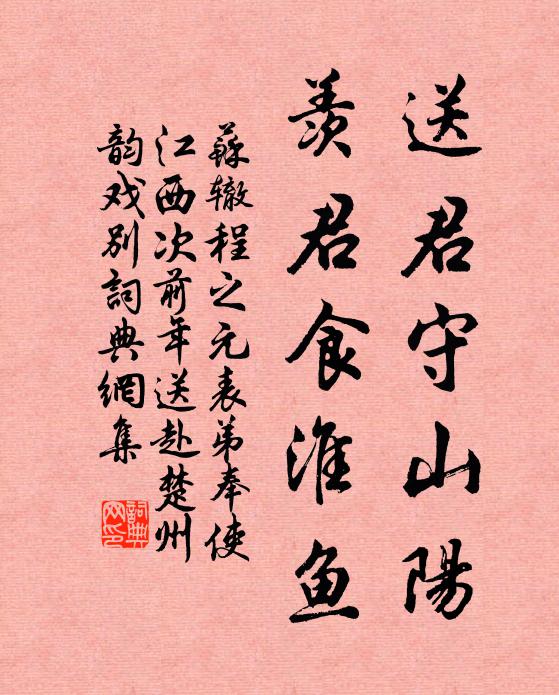 送君守山陽
羡君食淮鱼
蘇辙程之元表弟奉使
江西次前年送赴楚州
韵戏别詞典網集
詞典网印